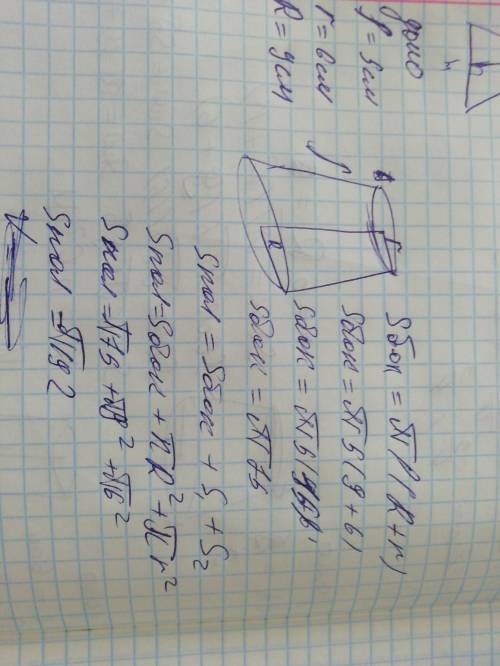 дано
l = 5 см
r = 6 см
R = 9 см
h
l
r
R
Sбок = π l (R + r)
Sбок = π 5 (9 + 6)
Sбок = π 5 (
Sбок = π 75
Sпол = Sбок + S₁ + S₂
Sпол = Sбок + πR² + πr²
Sпол = π75 + π9² + π6²
Sпол = π192